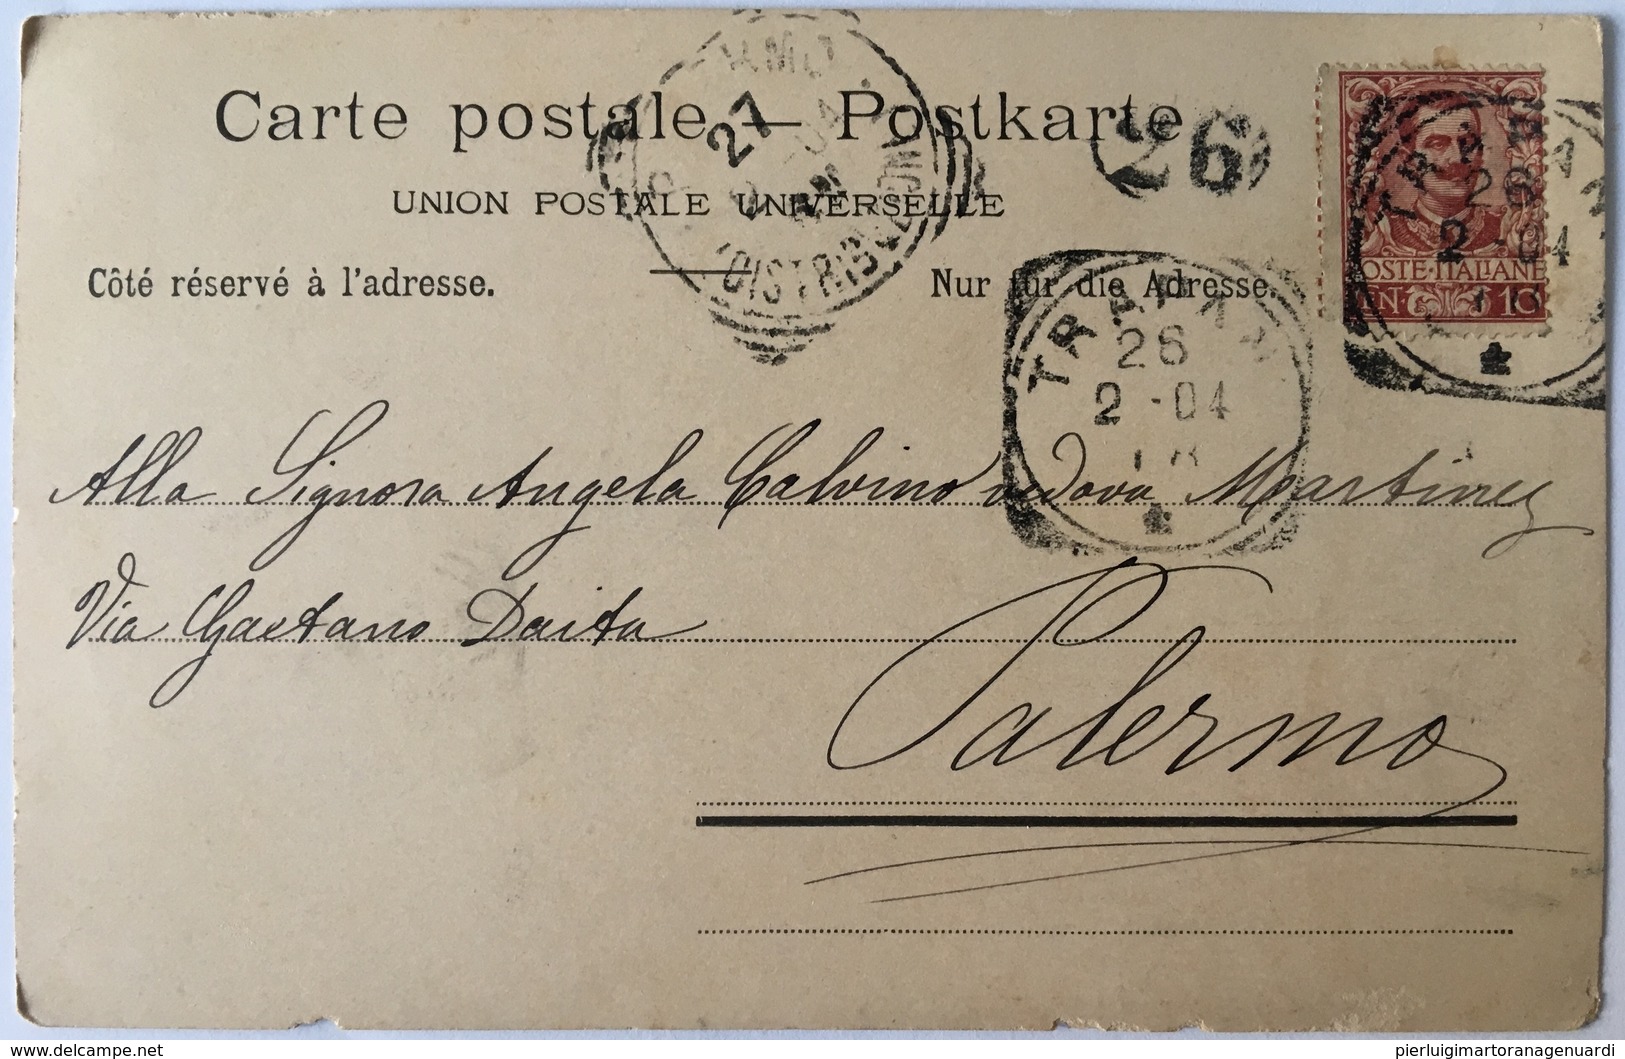 Carte postale — Postkarte
UNION POSTALE UNIVERSELLE
Côté réservé à l'adresse.
Nur für die Adresse.
27
DISTRIBUZION
26
TRAPANI
26
2 - 04
POSTE · ITALIANE
10
TRAPANI
26
2 - 04
18
Alla Signora Angela Calvino vedova Martinez
Via Gaetano Daita
Palermo
delcampe.net
pierluigimartoranagenuardi